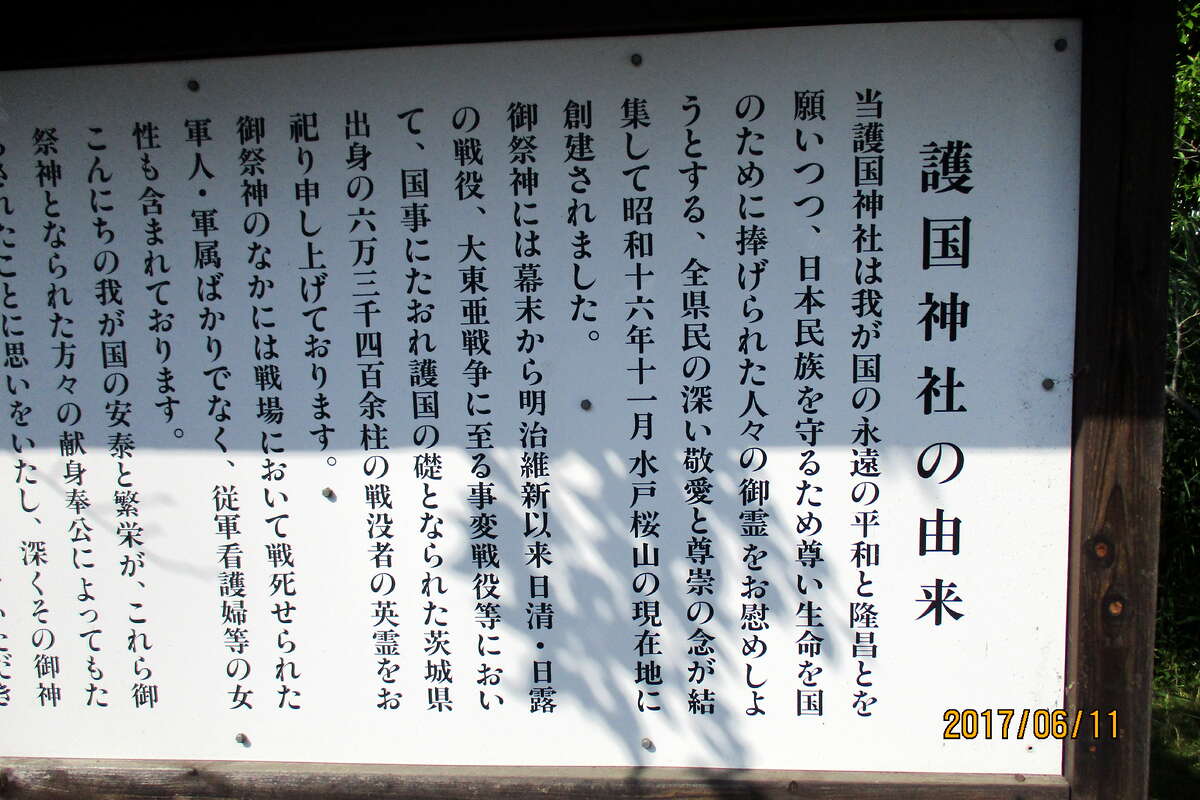 護国神社の由来
当護国神社は我が国の永遠の平和と隆昌とを
願いつつ、日本民族を守るため尊い生命を国
のために捧げられた人々の御霊をお慰めしよ
うとする、全県民の深い敬愛と尊崇の念が結
集して昭和十六年十一月水戸桜山の現在地に
創建されました。
御祭神には幕末から明治維新以来日清・日露
の戦役、大東亜戦争に至る事変戦役等におい
て、国事にたおれ護国の礎となられた茨城県
出身の六万三千四百余柱の戦没者の英霊をお
祀り申し上げております。
御祭神のなかには戦場において戦死せられた
軍人・軍属ばかりでなく、従軍看護婦等の女
性も含まれております。
こんにちの我が国の安泰と繁栄が、これら御
祭神となられた方々の献身奉公によってもた
らされたことに思いをいたし、深くその御神
2017/06/11